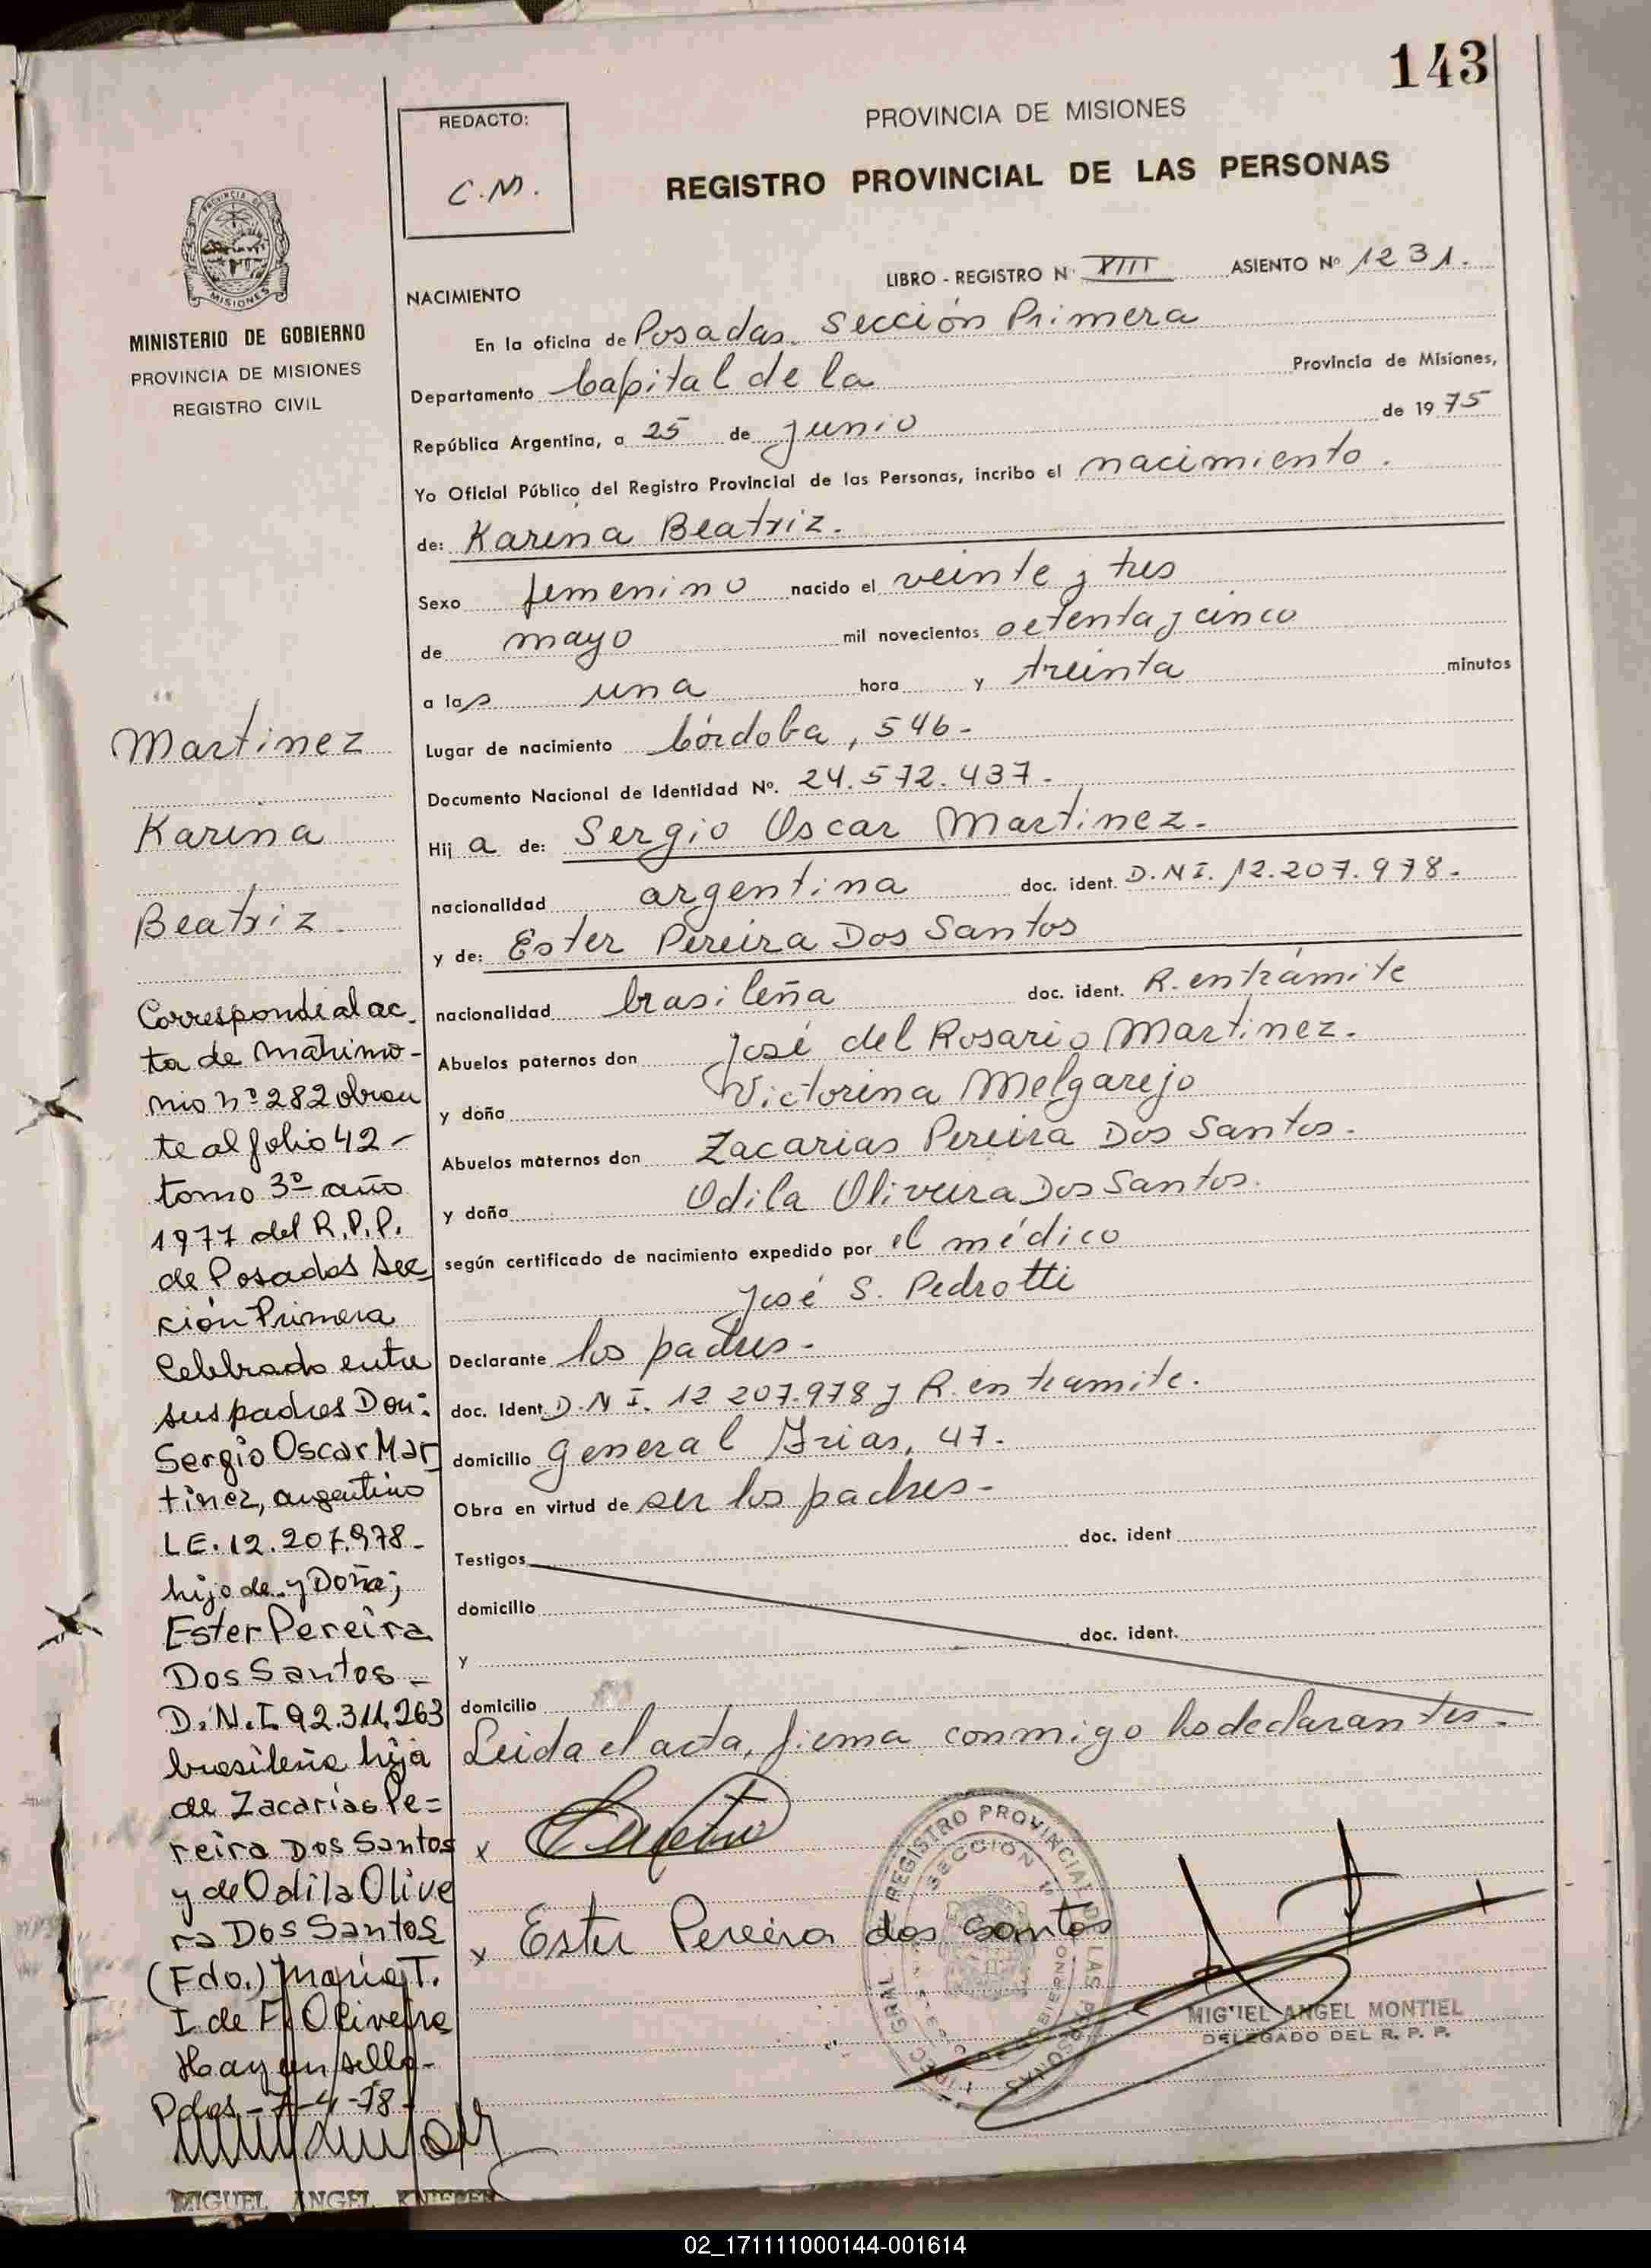 143
REDACTO:
C.M.
PROVINCIA DE MISIONES
REGISTRO PROVINCIAL DE LAS PERSONAS
PROVINCIA DE
MISIONES
MINISTERIO DE GOBIERNO
PROVINCIA DE MISIONES
REGISTRO CIVIL
LIBRO - REGISTRO N° XIII ASIENTO Nº 1231.
NACIMIENTO
En la oficina de Posadas. Sección Primera
Departamento Capital de la Provincia de Misiones,
República Argentina, a 25 de junio de 1975
Yo Oficial Público del Registro Provincial de las Personas, incribo el nacimiento.
de: Karina Beatriz.
Sexo femenino nacido el veinte y tres
de mayo mil novecientos setenta y cinco
a las una hora y treinta minutos
Lugar de nacimiento Córdoba, 546-
Documento Nacional de Identidad Nº. 24.572.437-
Hij a de: Sergio Oscar Martinez.
nacionalidad argentina doc. ident. D.N I. 12.207.978.
y de: Ester Pereira Dos Santos
nacionalidad brasileña doc. ident. R. en trámite
Abuelos paternos don José del Rosario Martinez.
y doña Victorina Melgarejo
Abuelos maternos don Zacarias Pereira Dos Santos.
y doña Odila Oliveira Dos Santos.
según certificado de nacimiento expedido por el médico
José S. Pedrotti
Declarante los padres-
doc. Ident. D.N I. 12 207.978 y R. en tramite.
domicilio General Frias, 47.
Obra en virtud de ser los padres-
Testigos doc. ident
domicilio
y doc. ident.
domicilio
Leida el acta, firma conmigo los declarantes.
x
x Ester Pereira dos santos
REGISTRO PROVINCIAL DE LAS PERSONAS
SECCIÓN 1ª
MIGUEL ANGEL MONTIEL
DELEGADO DEL R. P. P.
Martinez
Karina
Beatriz.
Corresponde al ac-
ta de Matrimo-
nio nº 282 obran
te al folio 42-
tomo 3º año
1977 del R.P.P.
de Posadas Sec
ción Primera
Celebrado entre
sus padres Don:
Sergio Oscar Mar_
tinez, argentino
LE. 12.207.978-
hijo de.. y Doña;
Ester Pereira
Dos Santos-
D.N.I. 92.311.263
brasileña hija
de Zacarías Pe=
reira Dos Santos
y de Odila Olive
ra Dos Santos
(Fdo.) María T.
I de F. Oliveira
Hay un sello-
Pdas-7-4-78-
MIGUEL ANGEL
02_171111000144-001614